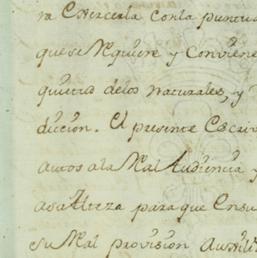 ra Exercerla con la puntua
que se Requiere y Conviene
quietud delos naturales, y
diccion. El presente Escriv
autos ala Real Audiencia y
asu Alteza para que En su
su Real provision Auxili